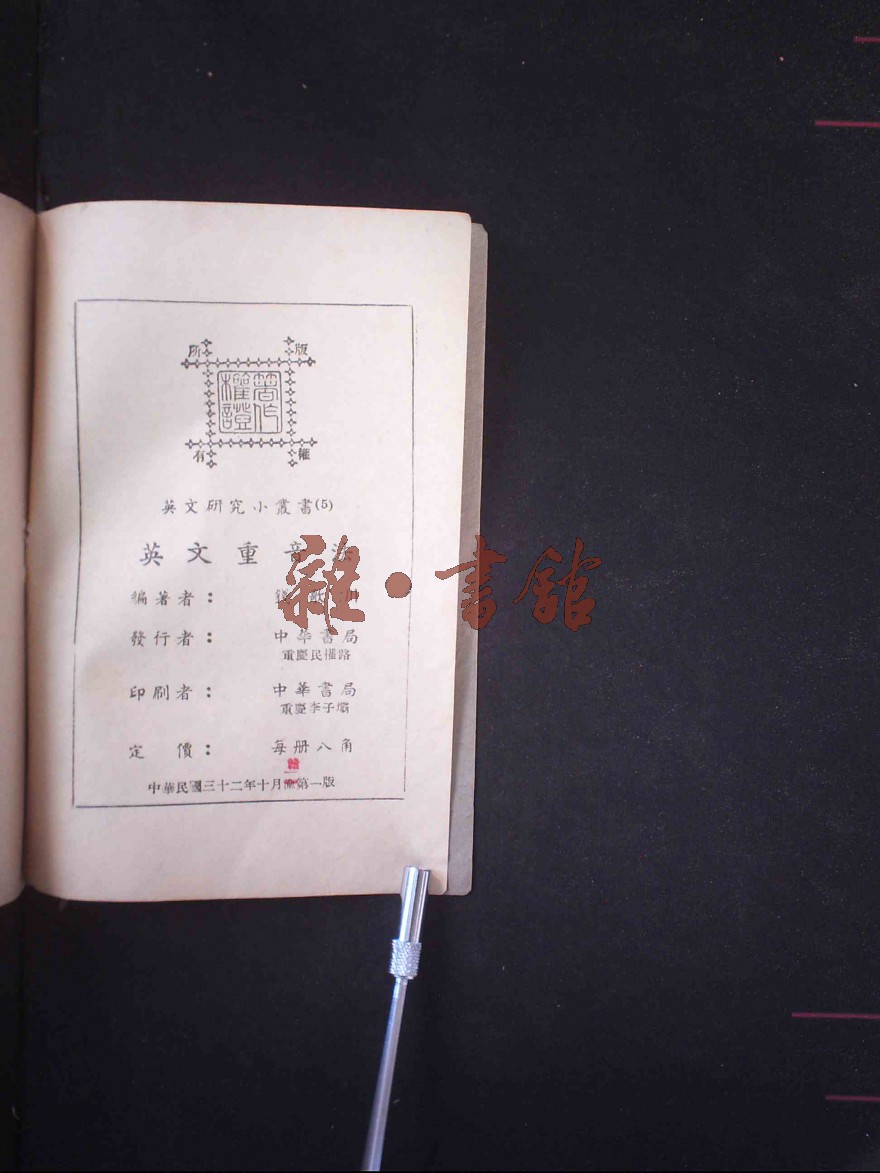 版權所有
著作權證
英文研究小叢書(5)
英文重音法
編著者：
發行者： 中華書局
重慶民權路
印刷者： 中華書局
重慶李子壩
定價： 每册八角
中華民國三十二年十月第一版
雜·書館